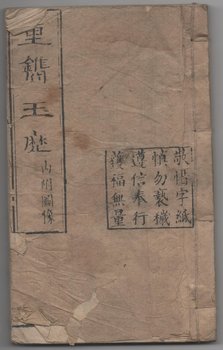 敬惜字紙
慎勿褻穢
遵信奉行
獲福無量
重鐫玉歷
內附圖像